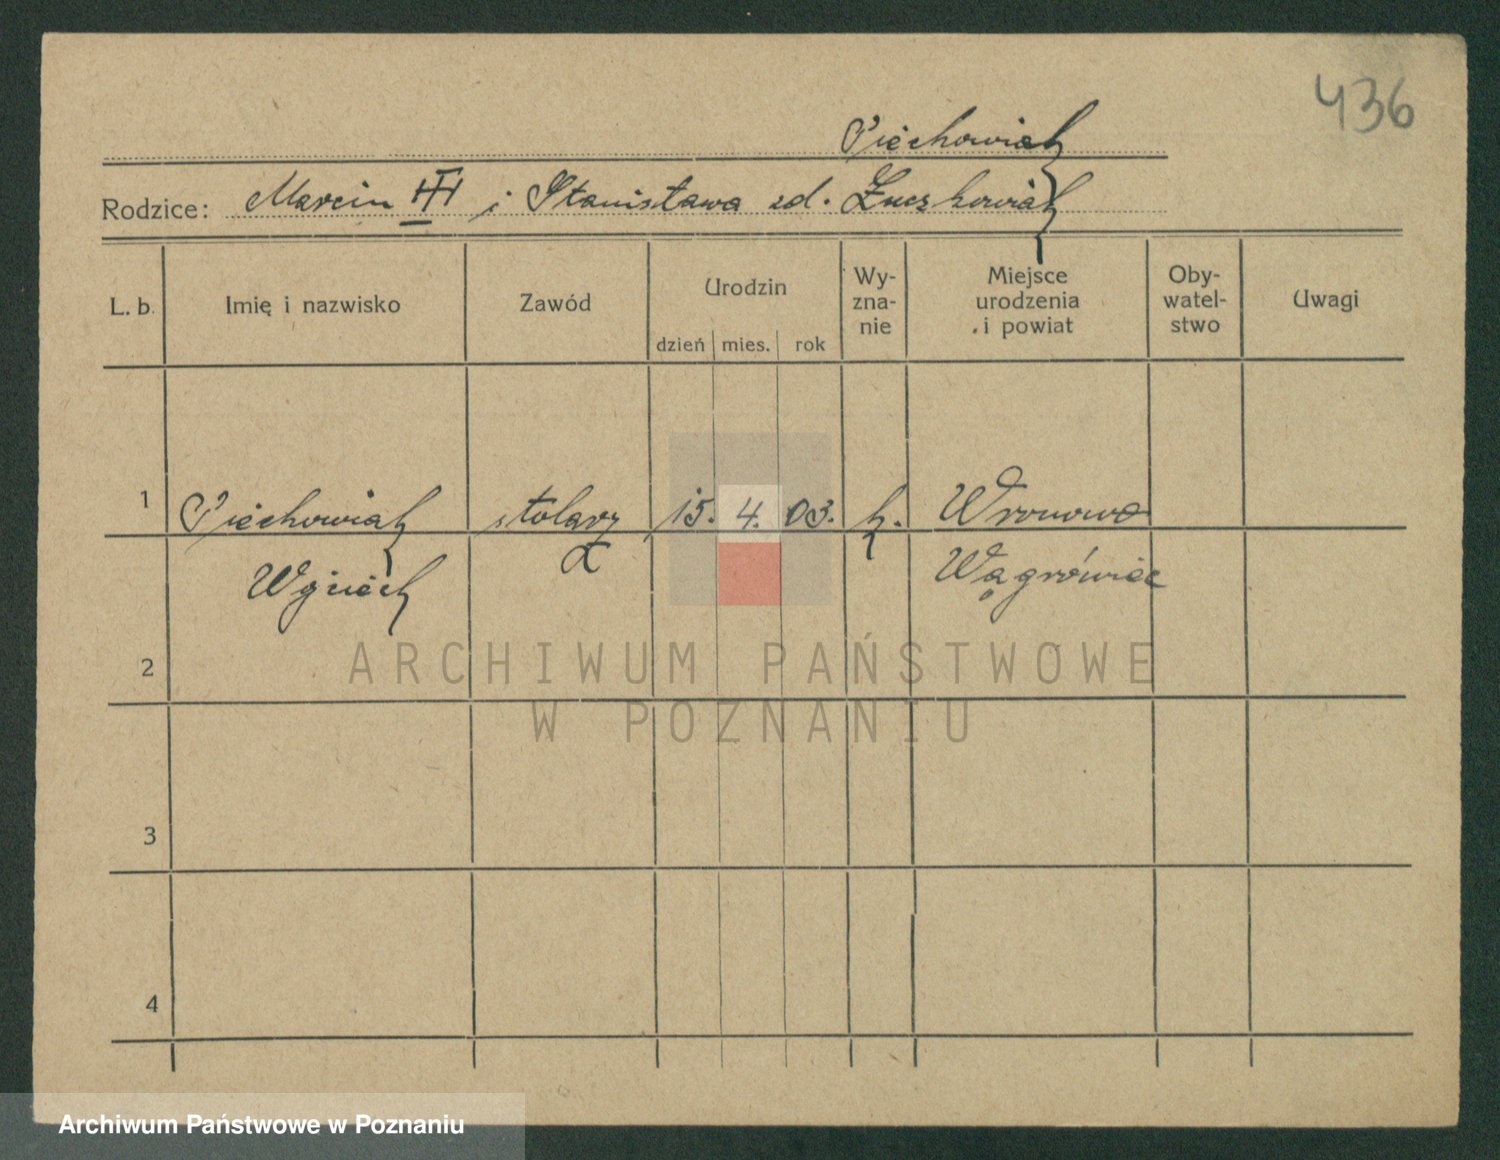 436
Piechowiak
Rodzice: Marcin III i Stanisława zd. Łuczkowiak
L. b. Imię i nazwisko Zawód Urodzin dzień mies. rok Wy-zna-nie Miejsce urodzenia i powiat Oby-watel-stwo Uwagi
1 Piechowiak stolarz 15. 4. 03. k. Wronowo
Wojciech Wągrówiec
2
ARCHIWUM PAŃSTWOWE
W POZNANIU
3
4
Archiwum Państwowe w Poznaniu